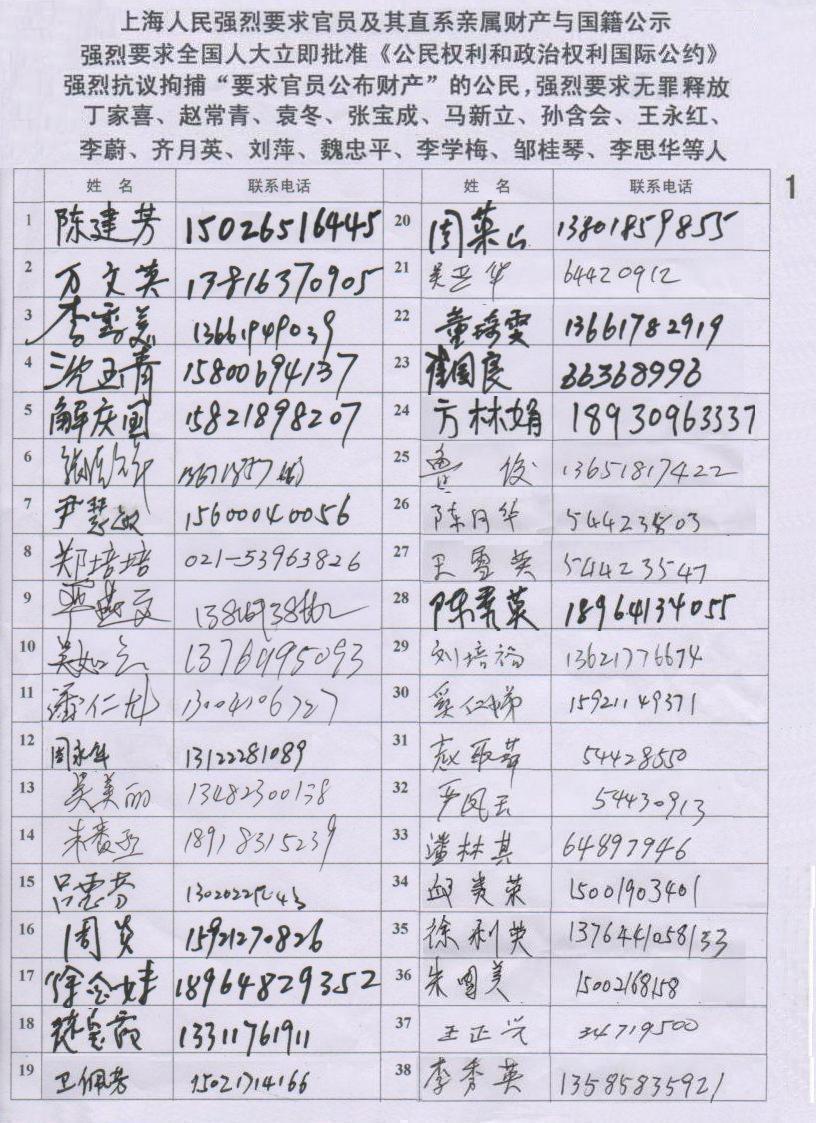 上海人民强烈要求官员及其直系亲属财产与国籍公示
强烈要求全国人大立即批准《公民权利和政治权利国际公约》
强烈抗议拘捕“要求官员公布财产”的公民,强烈要求无罪释放
丁家喜、赵常青、袁冬、张宝成、马新立、孙含会、王永红、
李蔚、齐月英、刘萍、魏忠平、李学梅、邹桂琴、李思华等人
1
姓 名 联系电话 姓 名 联系电话
1 陈建芳 15026516445 20 13801859855
2 万文英 13816370905 21 64420912
3 13661949039 22 13661782919
4 沈玉青 15800694137 23 崔国良 66368993
5 解庆国 15821898207 24 方林娟 18930963337
6 25 鲁俊 13651817422
7 尹慧敏 15600040056 26 陈月华
8 郑培培 021-53963826 27 王雪英 54423547
9 28 18964134055
10 13761995093 29 刘培福 13621776674
11 潘仁龙 13004106727 30 奚仁娣 15921149371
12 周永年 13122281089 31 54428550
13 吴美丽 13482300138 32 严凤云 54430913
14 18918315239 33 潘林其 64897946
15 吕云芬 34 15001903401
16 周炎 15921270826 35 徐利英
17 徐念妹 18964829352 36 朱国美 15002168158
18 13311761911 37 王正兴 34719500
19 卫佩芳 15021714166 38 李秀英 13585835921